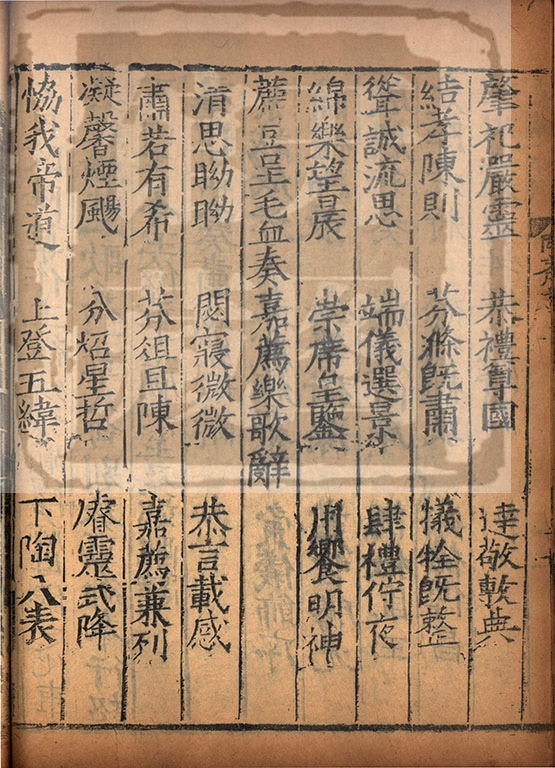 肇祀嚴靈 恭禮尊國 達敬敷典
結孝陳則 芬滌既肅 犧牷既整
聳誠流思 端儀選景 肆禮佇夜
綿樂望晨 崇席皇鑒 用饗明神
薦豆呈毛血奏嘉薦樂歌辭
清思眑眑 閟寢微微 恭言載感
肅若有希 芬俎且陳 嘉薦兼列
凝馨煙颺 分炤星哲 睿靈式降
協我帝道 上登五緯 下陶八表